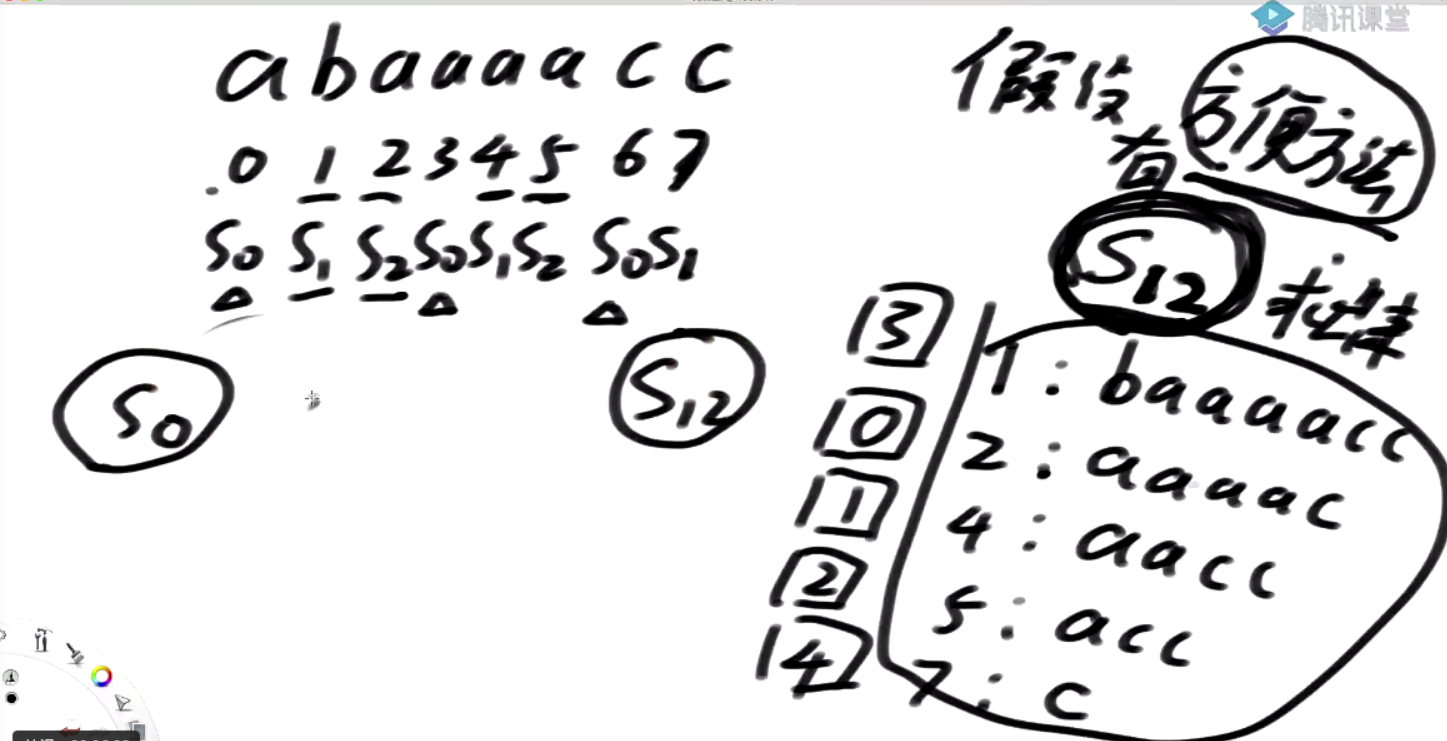 腾讯课堂
abaaaacc
0 1 2 3 4 5 6 7
S0 S1 S2 S0 S1 S2 S0 S1
S0
S12
假设
有 方便方法
S12 求出来
3 1 : baaaacc
0 2 : aaaac
1 4 : aacc
2 5 : acc
4 7 : c